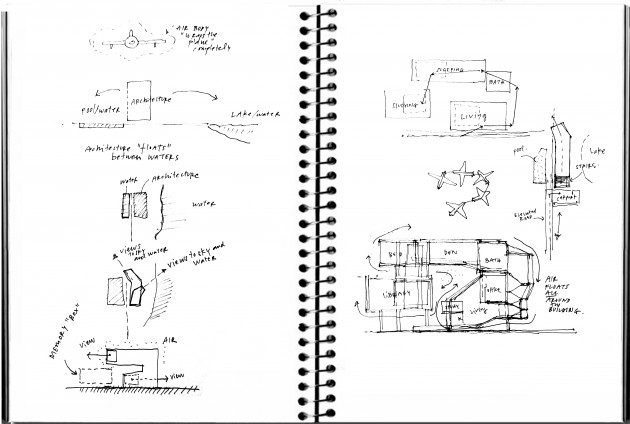 AIR BODY
"WRAPS THE
PLANE"
completely
ARCHITECTURE
POOL/WATER
LAKE/WATER
Architecture "FLOATS"
between WATERS
WATER
ARCHITECTURE
WATER
VIEWS
TO SKY
AND WATER
VIEWS TO SKY AND
WATER
MEMORY "BOX"
AIR
VIEW
VIEW
SLEEPING
BATH
STUDYING
LIVING
POOL
LAKE
STAIRS
CARPORT
ELEVATED
BED
DEN
BATH
LIBRARY
LIVING
AIR
FLOATS
ALL
AROUND
THE
BUILDING.